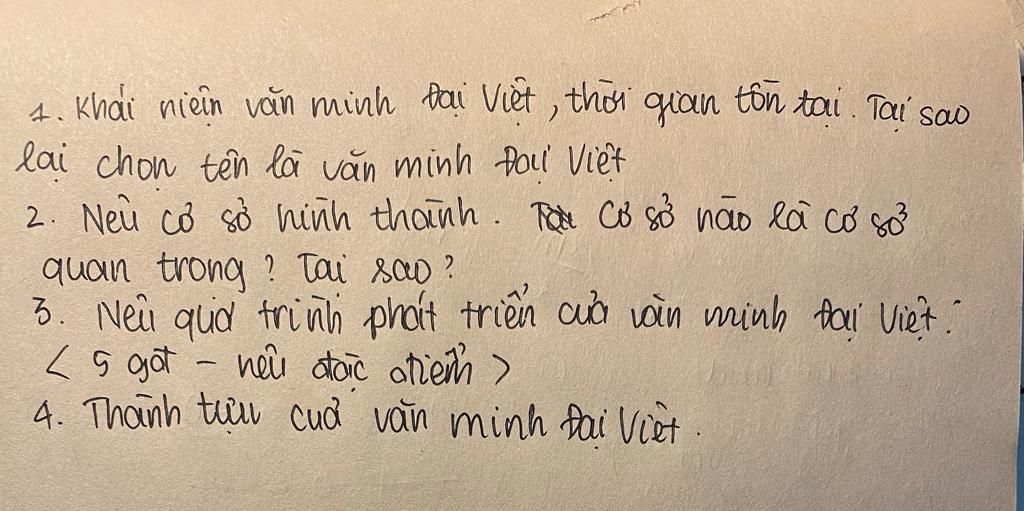 1. Khái niệm văn minh Đại Việt, thời gian tồn tại. Tại sao
lại chọn tên là văn minh Đại Việt
2. Nêu cơ sở hình thành. Cơ sở nào là cơ sở
quan trọng? Tại sao?
3. Nêu quá trình phát triển của văn minh Đại Việt.
< 5 gđ - nêu đặc điểm >
4. Thành tựu của văn minh Đại Việt.